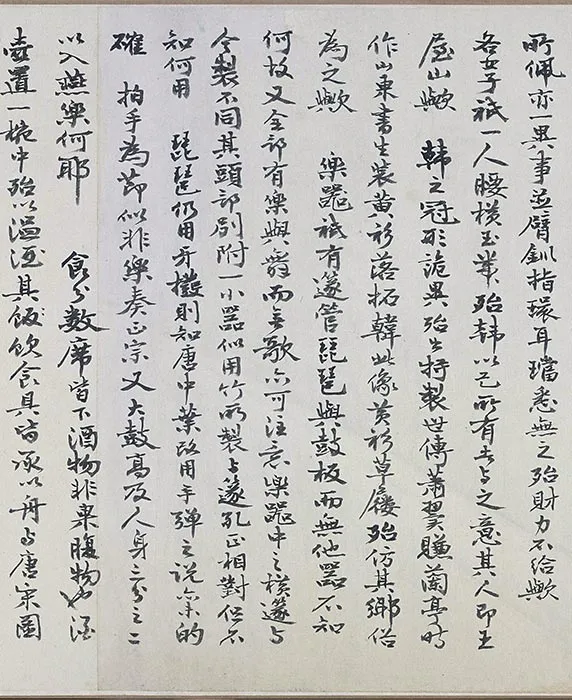 所佩亦一異事並臂釧指環耳璫悉無之殆財力不給歟
各女子祇一人腰橫玉帶殆韓以己所有者与之意其人即王
屋山歟 韓之冠形詭異殆出特製世傳蕭翼賺蘭亭時
作山東書生裝黃衫落拓韓此像黃衫草屨殆仿其鄉俗
為之歟 樂器祇有篴管琵琶與鼓板而無他器不知
何故又全部有樂與舞而無歌亦可注意樂器中之橫篴与
今製不同其頭部別附一小器似用竹所製与篴孔正相對但不
知何用 琵琶仍用牙撥則知唐中葉改用手弹之说未的
確 拍手為節似非樂奏正宗又大鼓高及人身三分之二
以入燕樂何耶 食分數席皆下酒物非果腹物也酒
壺置一椀中殆以溫酒其飯飲食具皆承以舟与唐宋圖